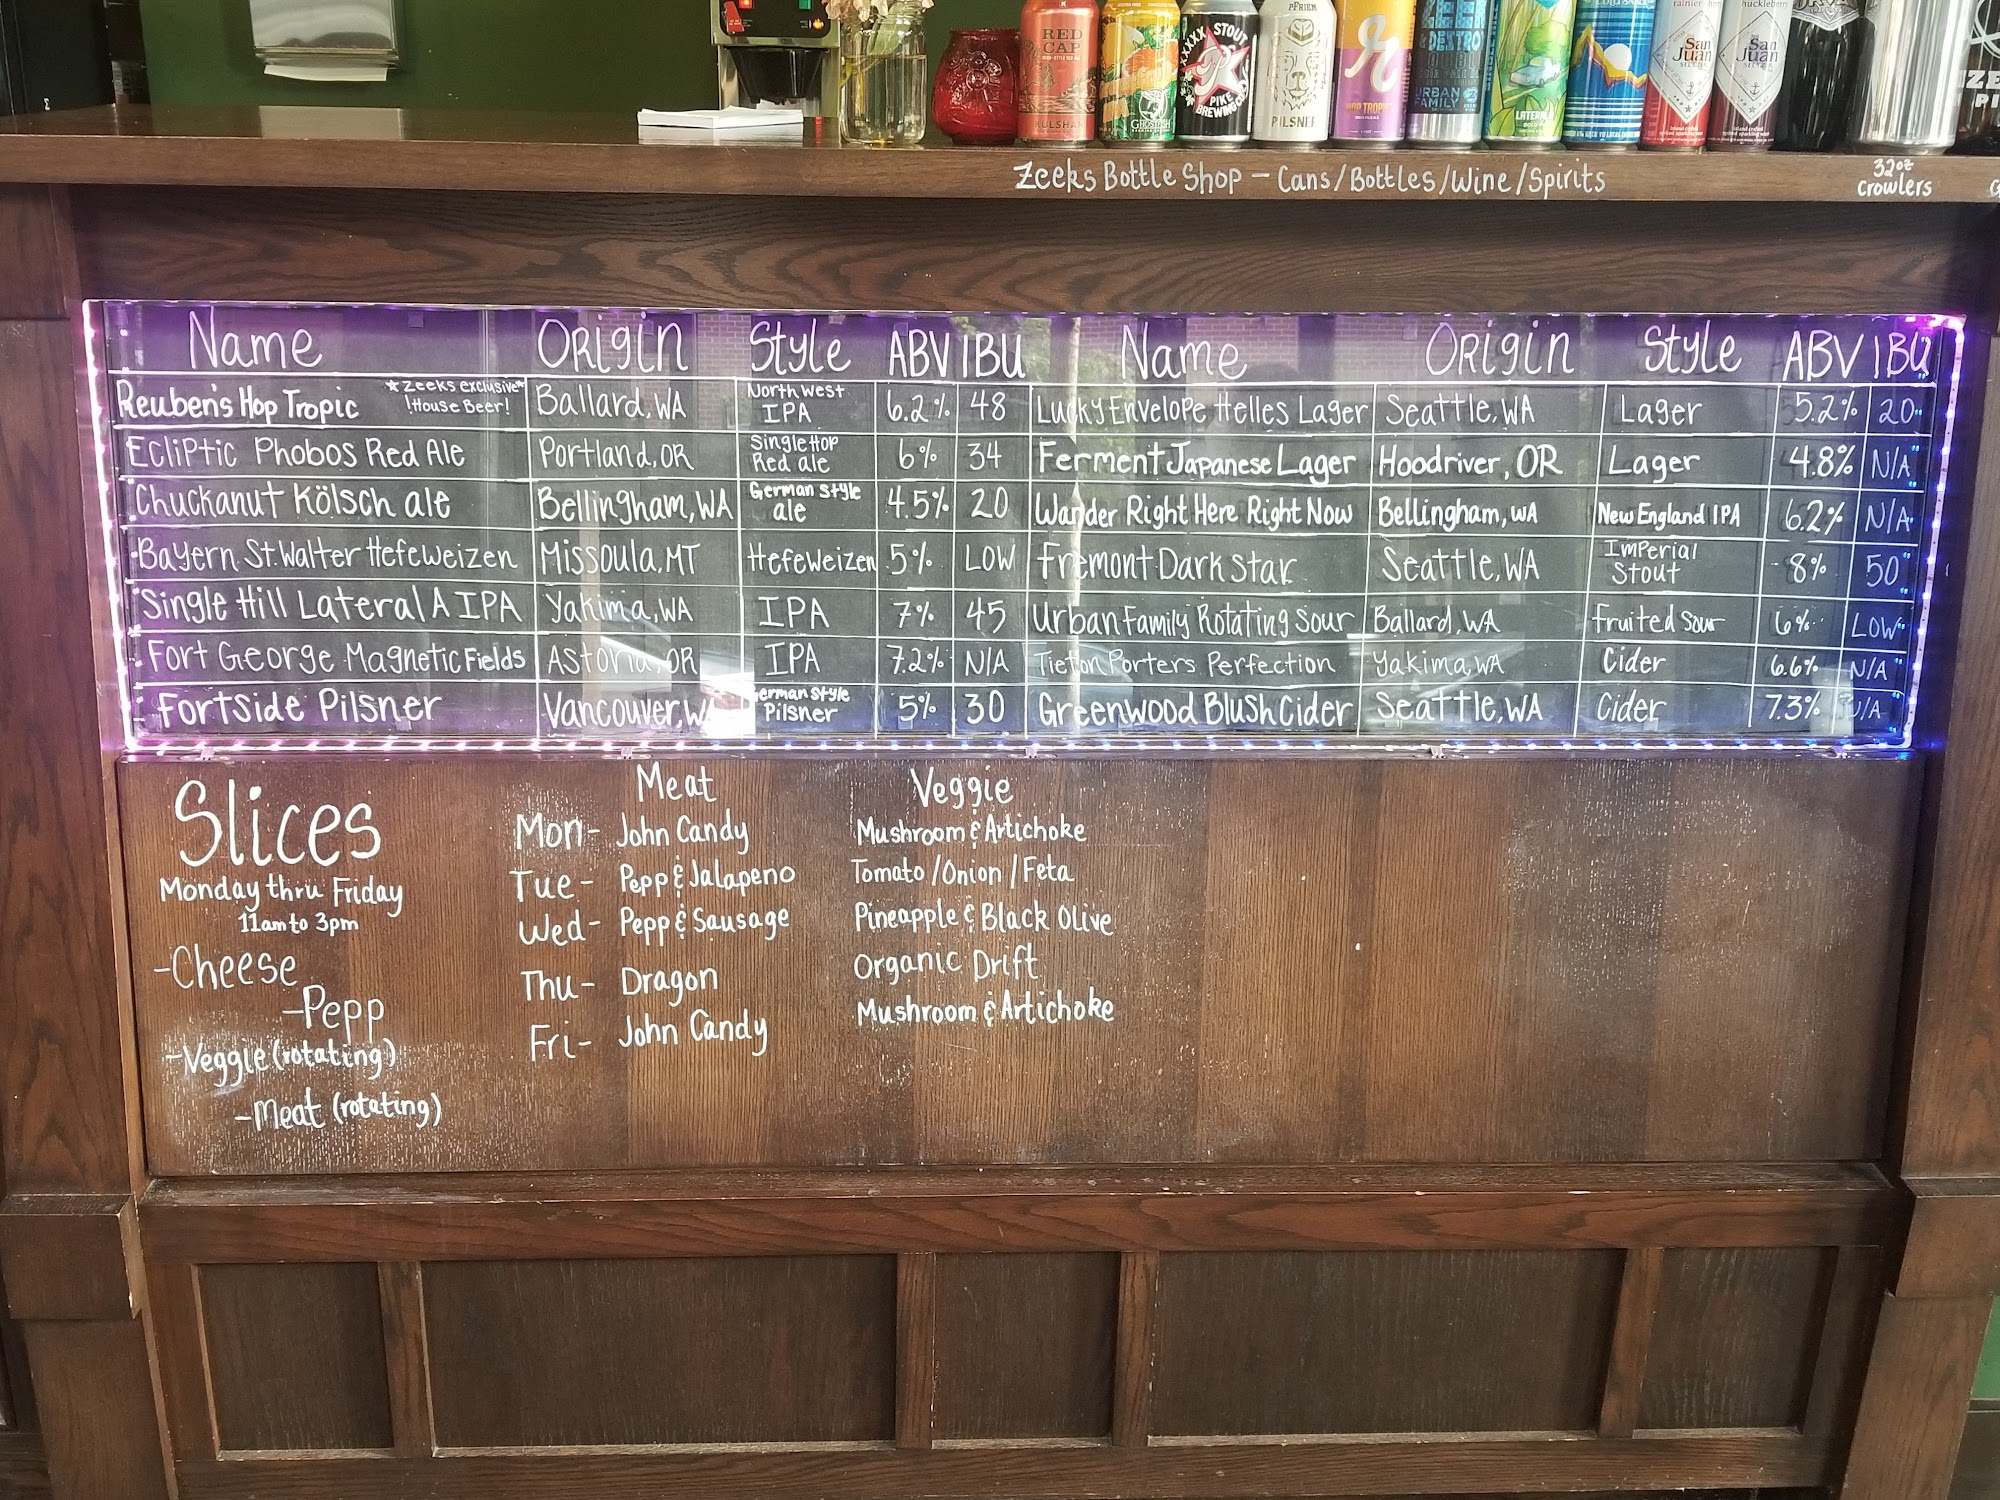 RED CAP
KULSHAN
GHOSTFISH
XXXXX STOUT
PIKE BREWING CO.
PFRIEM
PILSNER
HOP TROPIC
& DESTROY
URBAN FAMILY
LATERAL
rainier
San Juan
SELTZER
huckleberry
San Juan
SELTZER
Zeeks Bottle Shop - Cans/Bottles/Wine/Spirits
32oz
Crowlers
Name Origin Style ABV IBU
Reuben's Hop Tropic *Zeeks exclusive* !House Beer! Ballard, WA Northwest IPA 6.2% 48
Ecliptic Phobos Red Ale Portland, OR Single Hop Red ale 6% 34
Chuckanut Kölsch ale Bellingham, WA German Style ale 4.5% 20
Bayern St. Walter Hefeweizen Missoula, MT Hefeweizen 5% LOW
Single Hill Lateral A IPA Yakima, WA IPA 7% 45
Fort George Magnetic Fields Astoria, OR IPA 7.2% N/A
Fortside Pilsner Vancouver, WA German Style Pilsner 5% 30
Name Origin Style ABV IBU
Lucky Envelope Helles Lager Seattle, WA Lager 5.2% 20
Ferment Japanese Lager Hoodriver, OR Lager 4.8% N/A
Wander Right Here Right Now Bellingham, WA New England IPA 6.2% N/A
Fremont Dark Star Seattle, WA Imperial Stout 8% 50
Urban Family Rotating Sour Ballard, WA Fruited Sour 6% LOW
Tieton Porters Perfection Yakima, WA Cider 6.6% N/A
Greenwood Blush Cider Seattle, WA Cider 7.3% N/A
Slices
Monday thru Friday
11am to 3pm
-Cheese
-Pepp
-Veggie (rotating)
-Meat (rotating)
Meat Veggie
Mon- John Candy Mushroom & Artichoke
Tue- Pepp & Jalapeno Tomato/Onion/Feta
Wed- Pepp & Sausage Pineapple & Black Olive
Thu- Dragon Organic Drift
Fri- John Candy Mushroom & Artichoke